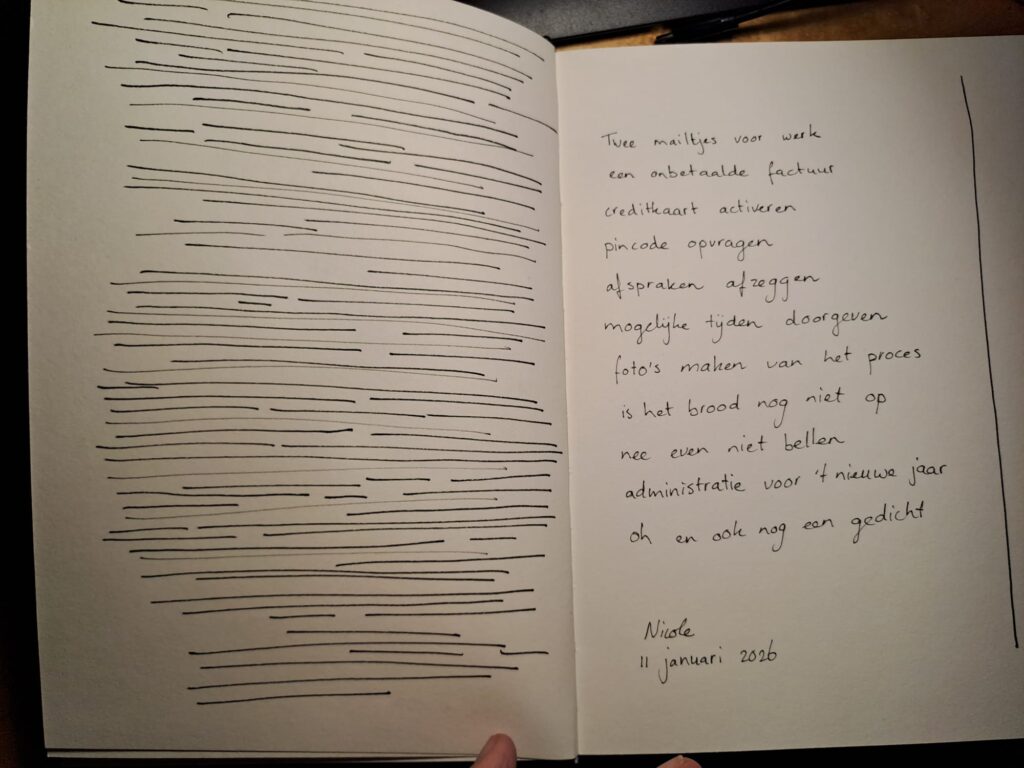 Twee mailtjes voor werk
een onbetaalde factuur
creditkaart activeren
pincode opvragen
afspraken afzeggen
mogelijke tijden doorgeven
foto's maken van het proces
is het brood nog niet op
nee even niet bellen
administratie voor 't nieuwe jaar
oh en ook nog een gedicht
Nicole
11 januari 2026